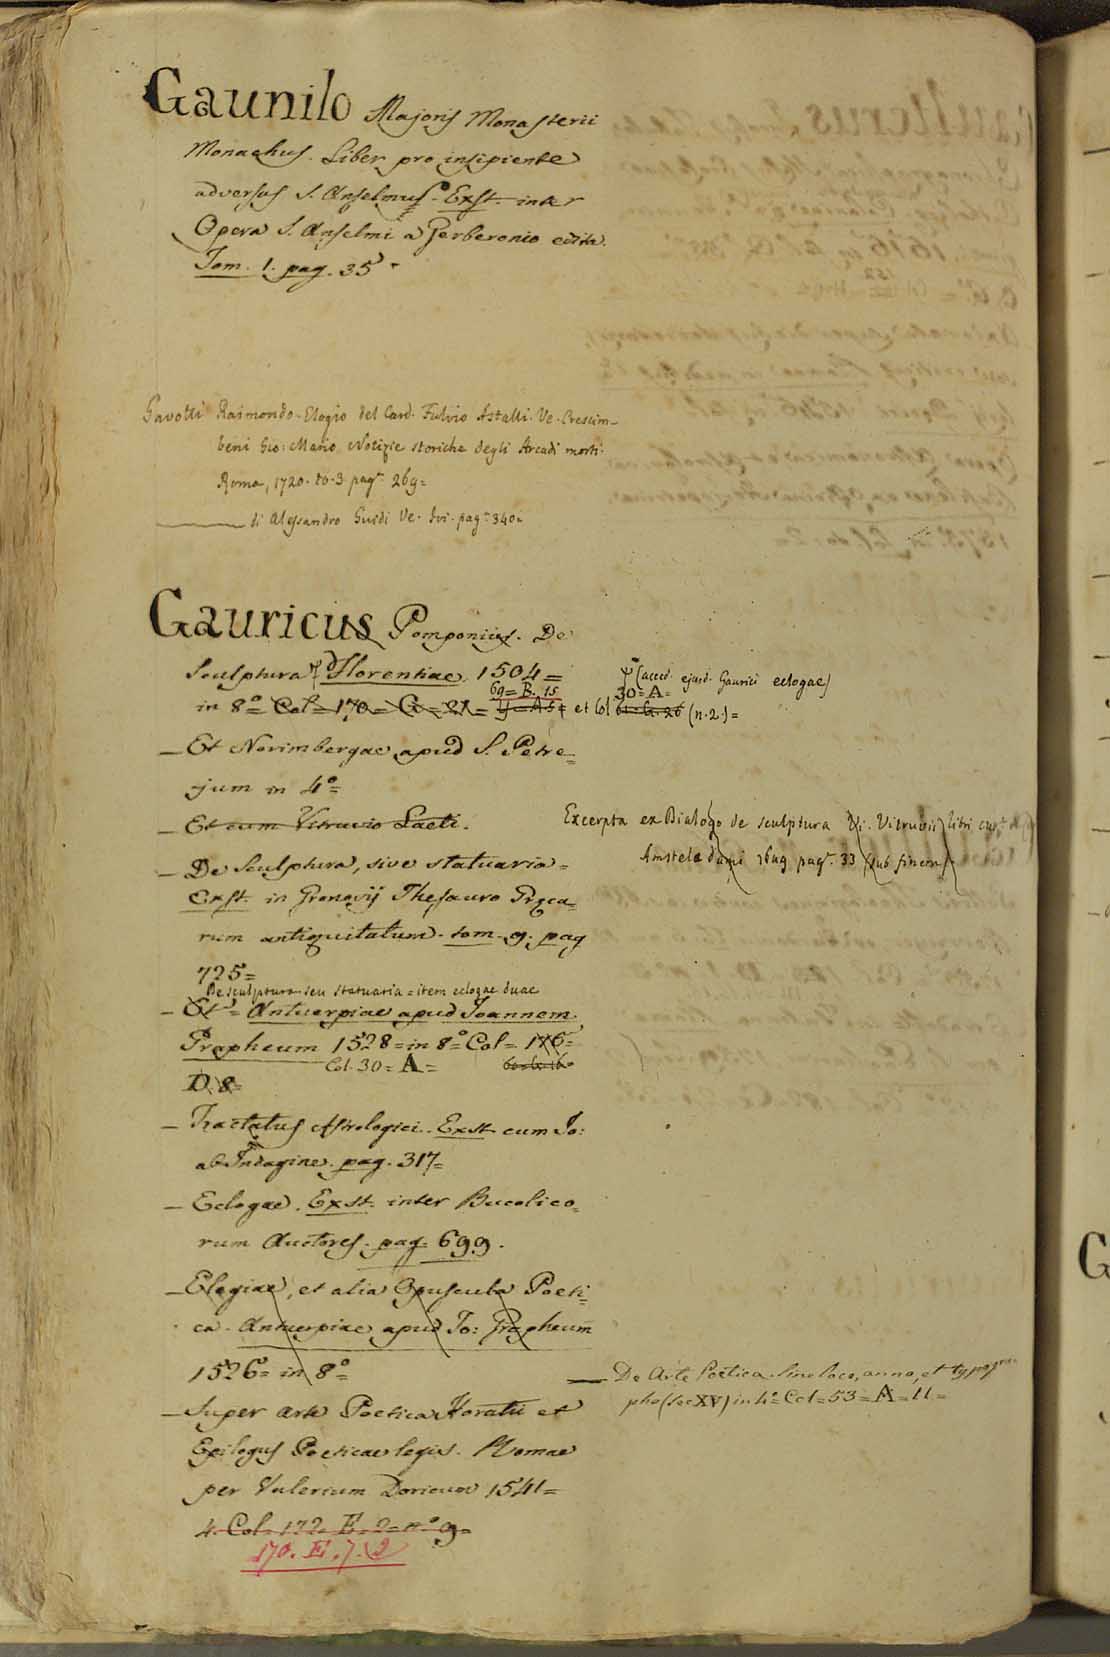 Gaunilo Majoris Monasterii
Monachus. Liber pro insipiente
adversus S. Anselmus. Exst. inter
Opera S. Anselmi a Gerberonio edita.
Tom. 1. pag. 35
Gavotti Raimondo. Elogio del Card. Fulvio Astalli. Ve. Crescim-
beni Gio: Mario Notizie storiche degli Arcadi morti.
Roma, 1720. to. 3. pag. 269=
di Alessandro Guidi Ve. Ivi. pag. 340=
Gauricus Pomponius. De
Sculptura Florentiae. 1504=
(acced. ejusd. Gaurici eclogae)
69=B. 15
30=A=
in 8º= Col= 170= G= 21= et Col (n. 2.)=
— Et Norimbergae apud S. Petre=
jum in 4º=
— Et cum Vitruvio Laeti.
Excerpta ex Dialogo de sculptura Vi. Vitruvii libri
Amstelodami 1649 pag. 33 (sub finem)
— De Sculptura, sive statuaria=
Exst. in Gronovij Thesauro Graeca=
rum antiquitatum. tom. 9. pag
725=
De sculptura seu statuaria= item eclogae duae
— Et= Antuerpiae apud Joannem
Grapheum 1528= in 8º= Col= 176=
Col. 30= A=
D. 8=
— Tractatus Astrologici. Exst. cum Jo:
ab Indagine. pag. 317=
— Eclogae. Exst. inter Bucolico=
rum Auctores. pag. 699.
— Elegiae, et alia Opuscula Poeti=
ca. Antuerpiae apud Jo: Grapheum
1526= in 8º=
— De Arte Poetica. Sine loco, anno, et typogra
pho (sec XV) in 4º= Col= 53= A= 11=
— Super Arte Poetica Horatii et
Epilogus Poeticae legis. Romae
per Valerium Doricum 1541=
4. Col= 172. E= 2= nº 9=
170. E. 7. 2
G